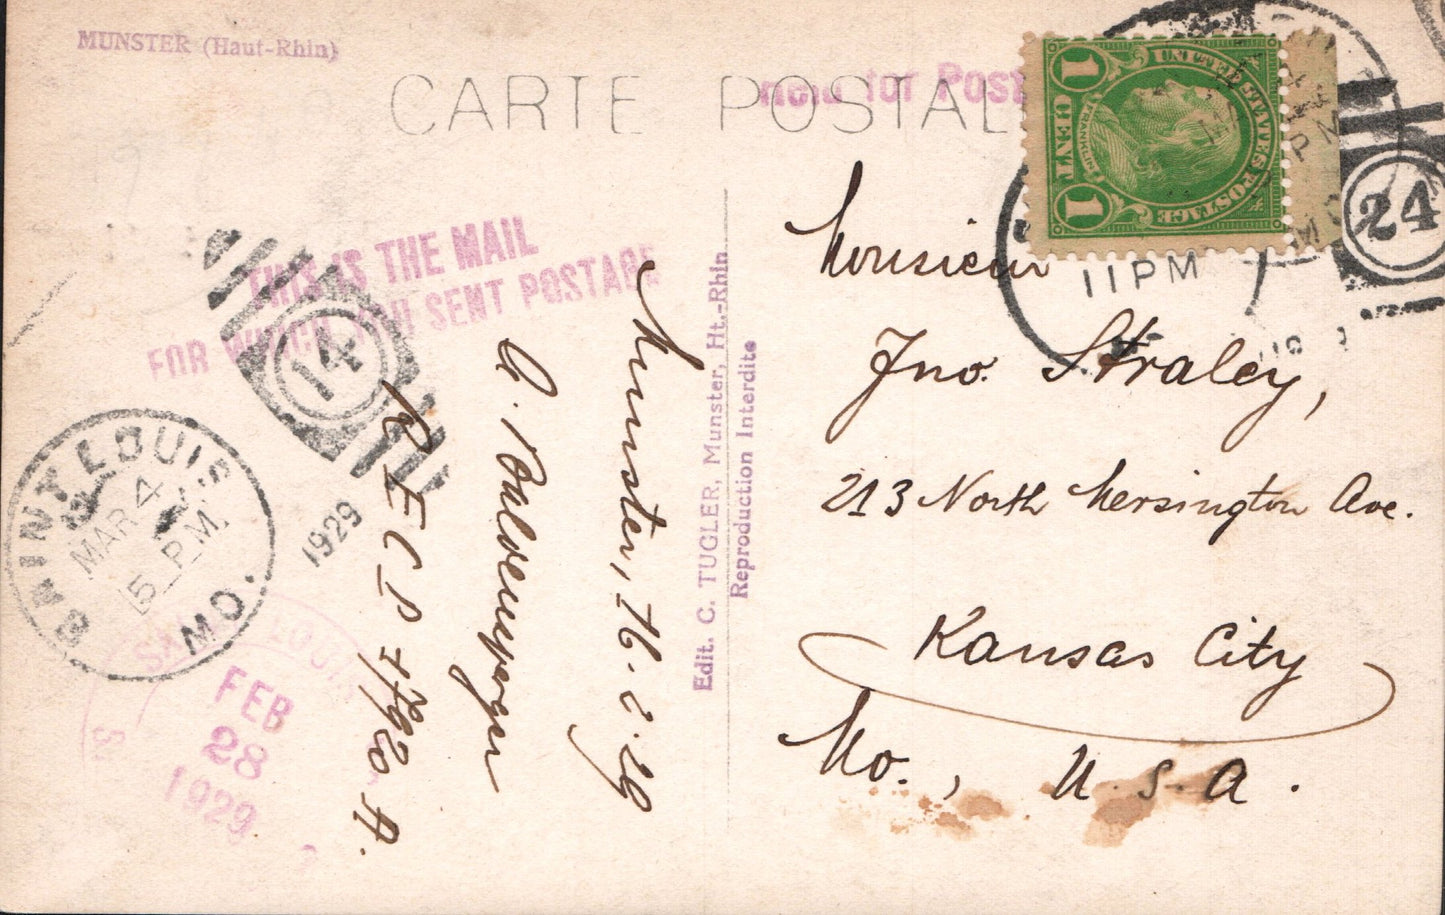 MUNSTER (Haut-Rhin)
CARTE POSTAL
Held for Post
UNITED STATES POSTAGE
1 CENT 1
FRANKLIN
11 PM
24
Monsieur
Jno. Straley,
213 North Mersington Ave.
Kansas City
Mo., U.S.A.
THIS IS THE MAIL
FOR WHICH YOU SENT POSTAGE
14
SAINT LOUIS
MAR 4
5 PM
MO.
1929
SAINT LOUIS
FEB
28
1929
Edit. C. TUGLER, Munster, Ht.-Rhin
Reproduction Interdite
Munster, 16. 2. 29